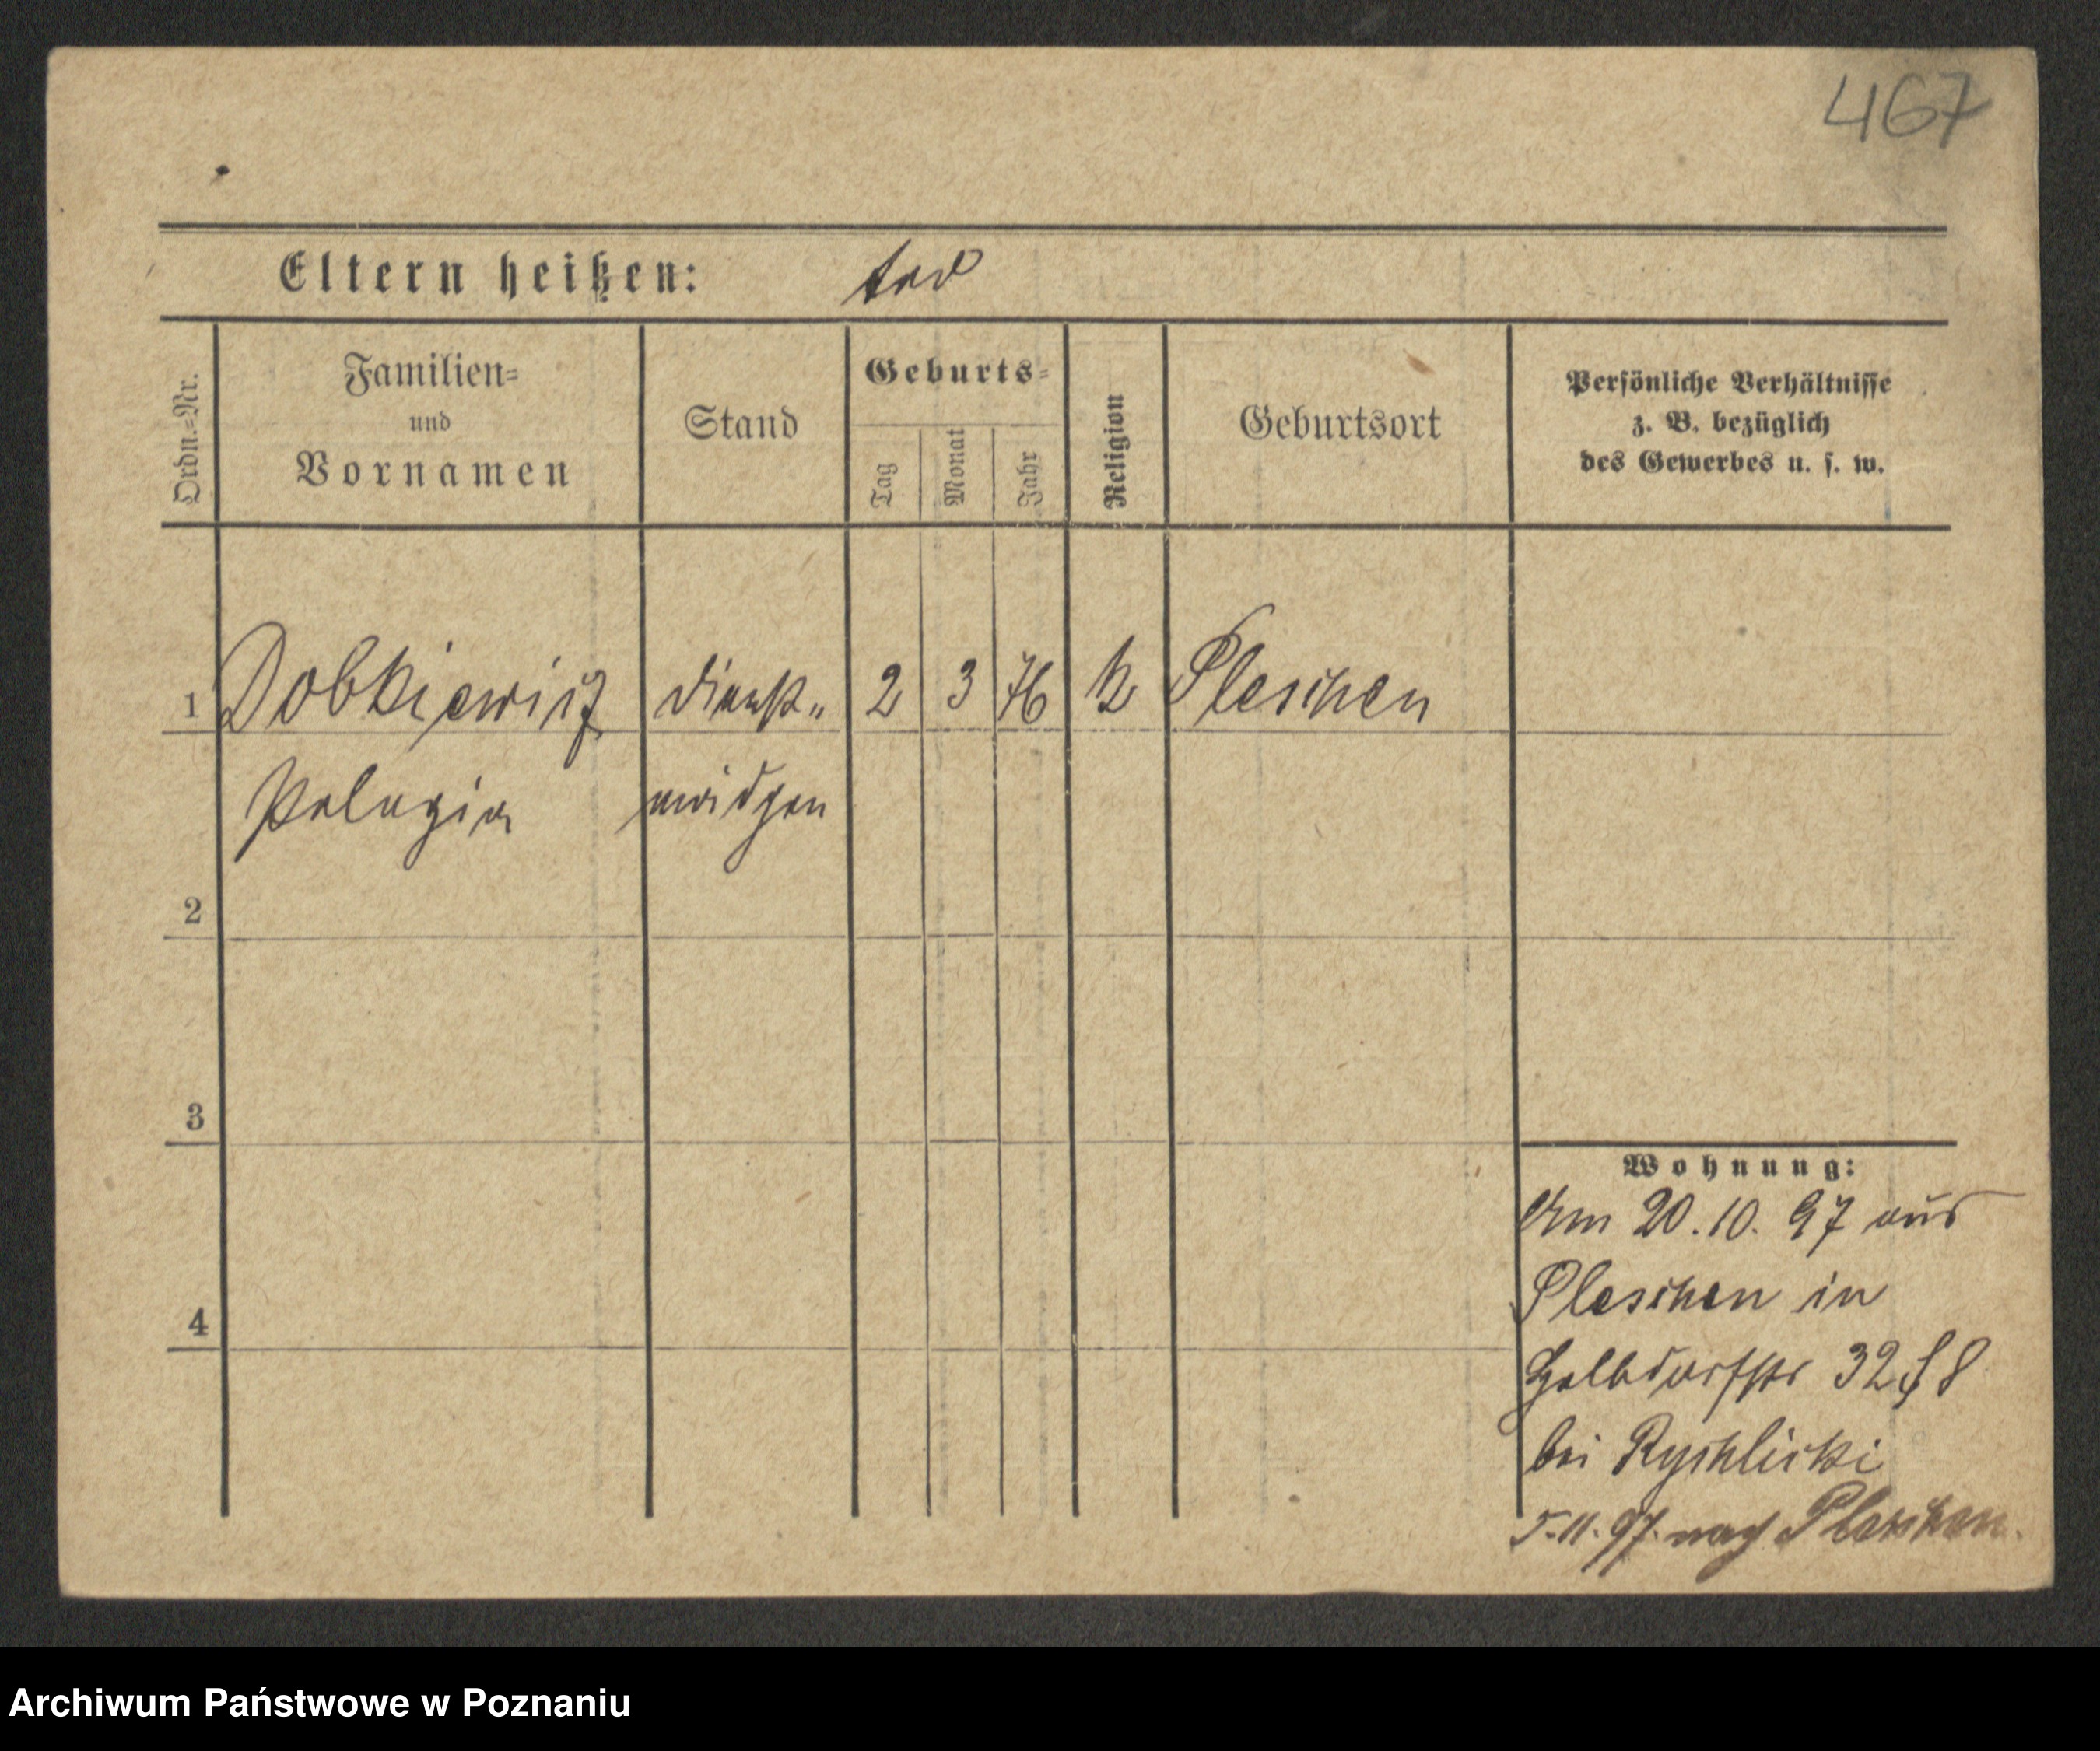 467
Eltern heißen: tod
Ordn.=Nr.
Familien=
und
Vornamen
Stand
Geburts=
Tag
Monat
Jahr
Religion
Geburtsort
Persönliche Verhältnisse
z. B. bezüglich
des Gewerbes u. s. w.
1 Dobkiewicz Dienst„ 2 3 76 k Pleschen
Pelagia mädgen
2
3
4
Wohnung:
Am 20.10.97 aus
Pleschen in
Halbdorfstr 32
bei Rychlicki
5.11.97. nach Pleschen.
Archiwum Państwowe w Poznaniu